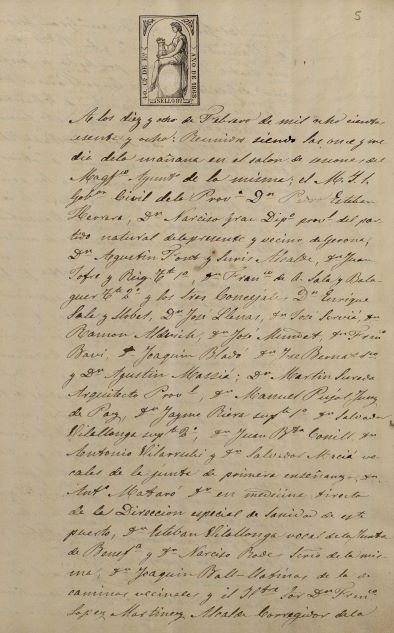 5
AÑO DE 1868
SELLO 9º
A los diez y ocho de Febrero de mil ocho cientos
sesenta y ocho. Reunidos siendo las once y me
dia de la mañana en el salon de sesiones del
Magfco Ayunt. de la misma; el M. Y. S.
Gobor Civil de la Prova Dn Pedro Esteban
Herrera, Dn Narciso Grau Dipo provl del par
tido natural de la presente y vecino de Gerona,
Dn Agustin Font y Surís Alcalde, Dn Juan
Jofre y Roig Tte 1º, Dn Franco de A. Sala y Bala
guer Tte 2º y los Sres Concejales Dn Enrique
Sala y Llobet, Dn José Llenas, Dn José Serviá, Dn
Ramon Aldrich, Dn José Muñdet, Dn Franco
Bavi, Dn Joaquin Bladó Dn José Bernaz
y Dn Agustin Massiá; Dn Martin Sureda
Arquitecto Provl, Dn Manuel Pujol Juez
de Paz, Dn Jayme Riera supte 1º Dn Salvador
Vilallonga supte 2º, Dn Juan Bta Conill, Dn
Antonio Vilarrubi y Dn Salvador Maciá vo
cales de la junta de primera enseñanza, Dn
Anto Mataro Dr en medicina director
de la Direccion especial de Sanidad de este
puerto, Dn Esteban Vilallonga vocal de la Junta
de Benefa y Dn Narciso Rode Srio de la mis
ma, Dn Joaquin Ball-llatinas de la de
caminos vecinales y el Sor Dn Franco
Lopez Martinez Alcalde Corregidor de la